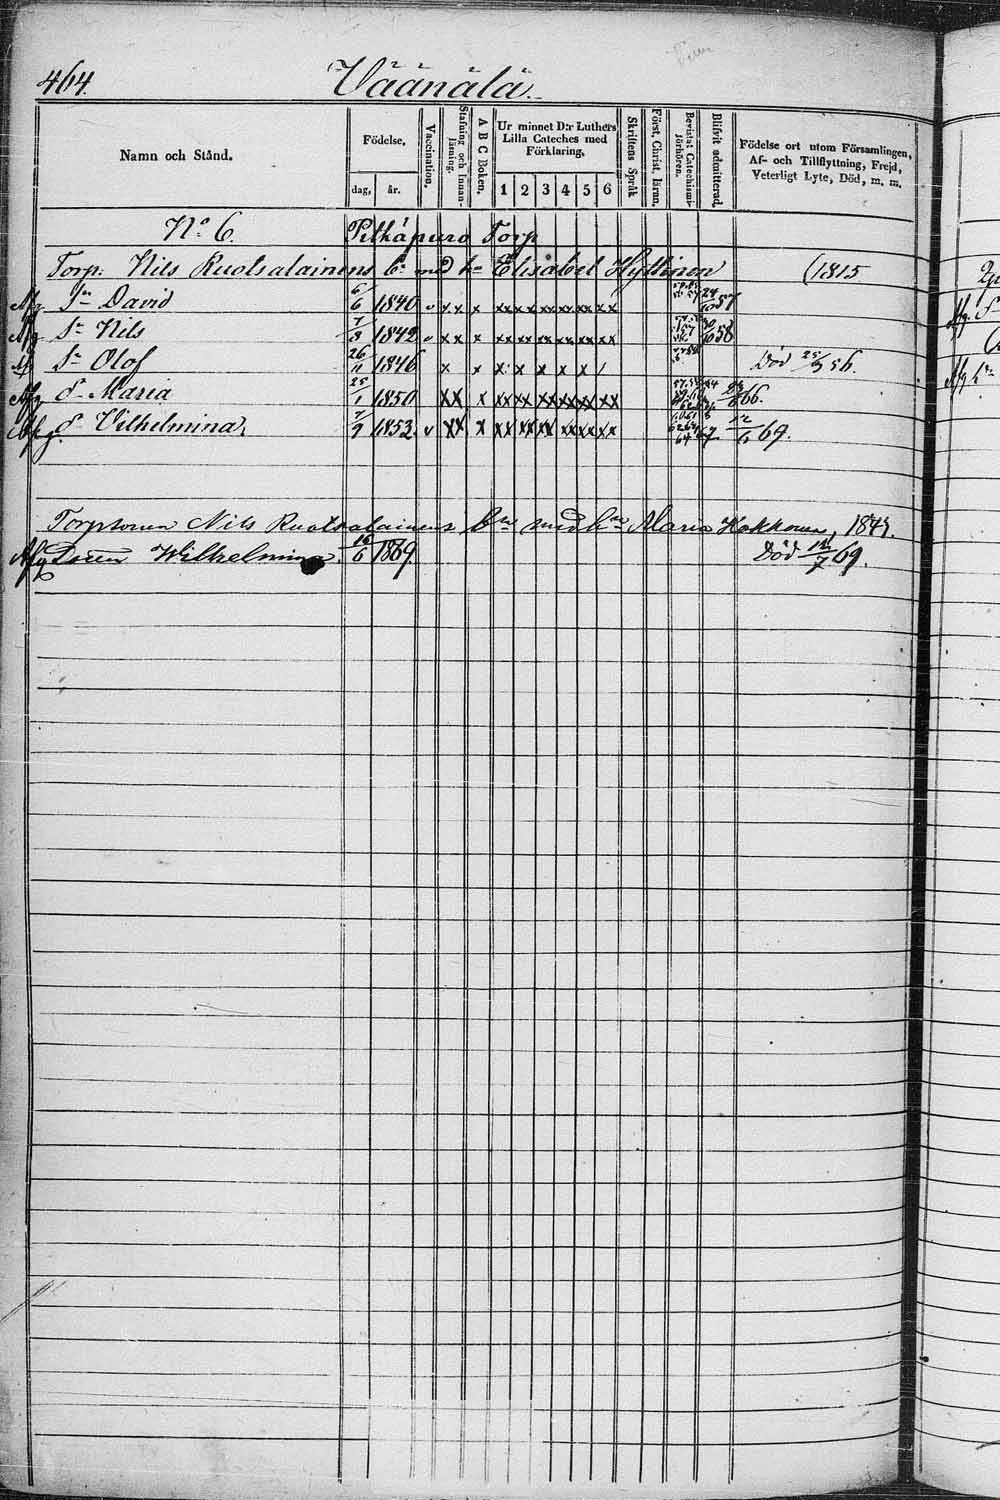 464. Väänälä.
Namn och Stånd. Födelse, dag, år. Vaccination. Stafning och Innanläsning. A B C Boken. Ur minnet D:r Luthers Lilla Cateches med Förklaring, 1 2 3 4 5 6 Skriftens Språk Först. Christ. läran. Bevistat Catechismiförhören. Blifvit admitterad. Födelse ort utom Församlingen, Af- och Tillflyttning, Frejd, Veterligt Lyte, Död, m. m.
No 6. Pitkäpuro Torp
Torp. Nils Ruotsalainens bn med hu Elisabet Hyttinen (1815
Afg Sn David 6/6 1840 v x x x xx xx xx xx xx xx 57
Afg Sn Nils 7/8 1842 v x x x xx xx xx xx xx xx 58
Sn Olof 26/11 1846 x x x x x x x / Död 25/5 56.
Afg dr Maria 25/1 1850 xx x xx xx xx xx xx xx 66.
dr Vilhelmina. 7/9 1853 v xx x xx xx xx xx xx xx 69.
Torparen Nils Ruotsalainens bn med hu Maria Kokkonen, 1847.
Afg Dottren Wilhelmina. 16/6 1869. Död 12/7 69.